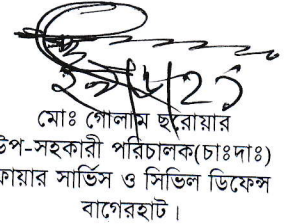 মোঃ গোলাম ছরোয়ার
উপ-সহকারী পরিচালক(চাঃদাঃ)
ফায়ার সার্ভিস ও সিভিল ডিফেন্স
বাগেরহাট।